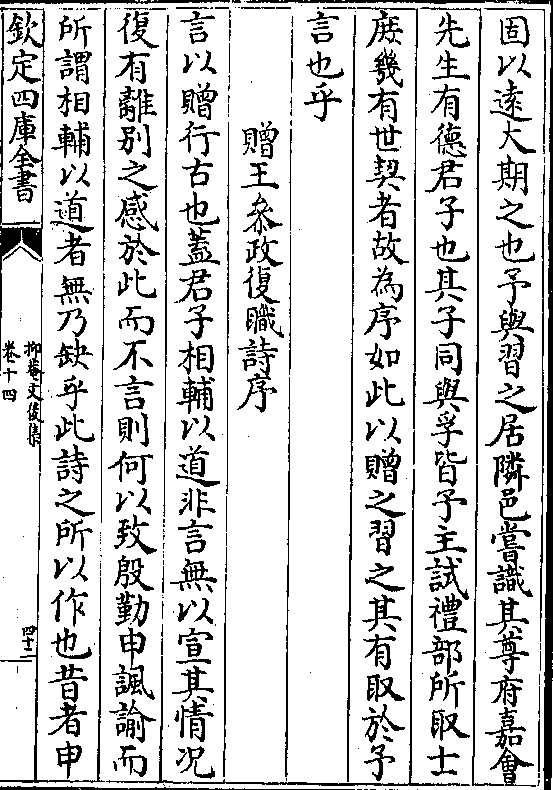 固以遠大期之也予與習之居隣邑嘗識其尊府嘉會
先生有德君子也其子同與孚皆予主試禮部所取士
庶幾有世契者故為序如此以贈之習之其有取於予
言也乎
贈王叅政復職詩序
言以贈行古也蓋君子相輔以道非言無以宣其情况
復有離別之感於此而不言則何以致殷勤申諷諭而
所謂相輔以道者無乃缺乎此詩之所以作也昔者申
欽定四庫全書
抑菴文後集
卷十四
四十二